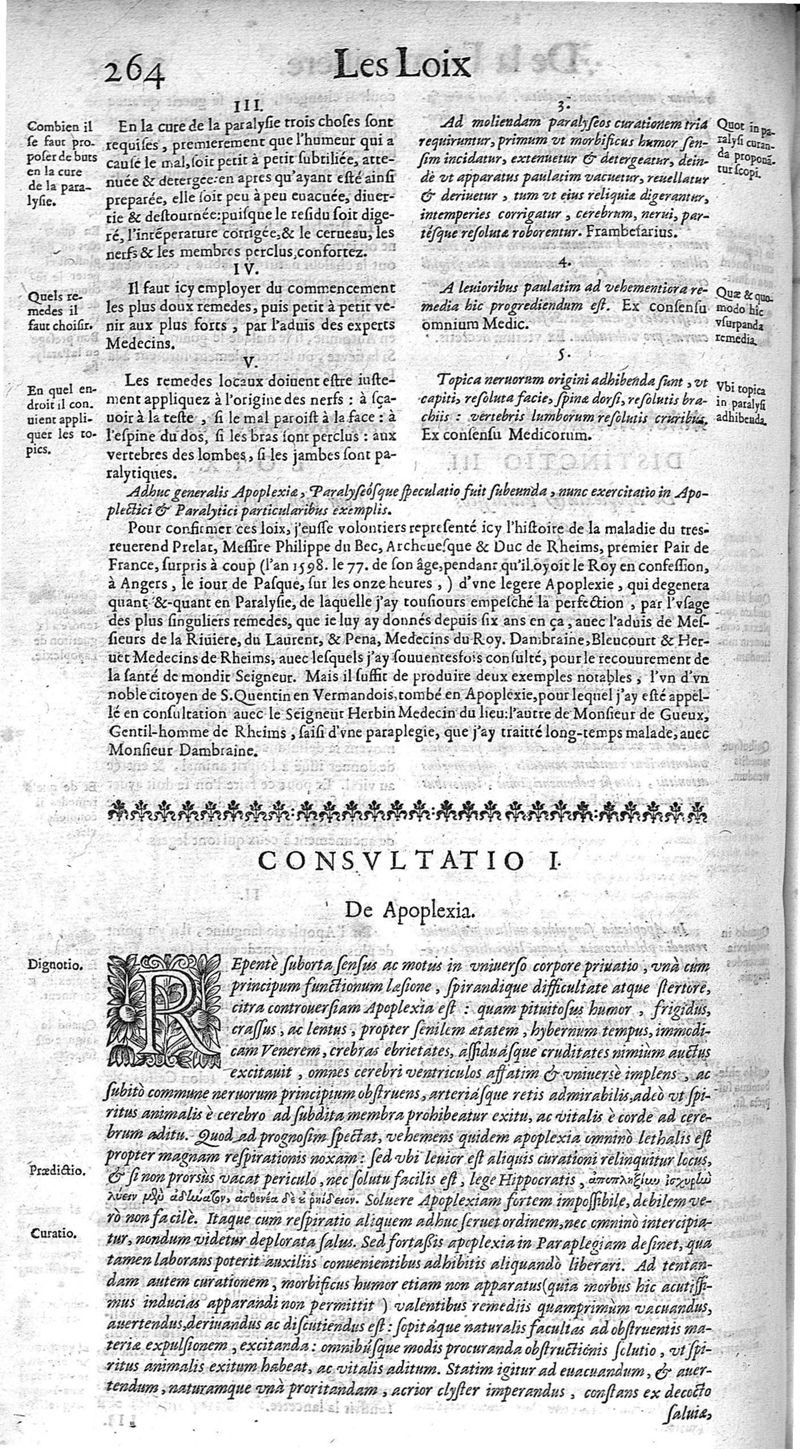 264
Les Loix
Combien il
se faut pro-
poser de buts
en la cure
de la para-
lysie.
III.
En la cure de la paralysie trois choses sont
requises, premierement que l'humeur qui a
causé le mal, soit petit à petit subtiliée, atte-
nuée & detergée: en apres qu'ayant esté ainsi
preparée, elle soit peu à peu euacuée, diuer-
tie & destournée: puisque le residu soit dige-
ré, l'intéperature corrigée, & le cerueau, les
nerfs & les membres perclus, confortez.
Quels re-
medes il
faut choisir.
IV.
Il faut icy employer du commencement
les plus doux remedes, puis petit à petit ve-
nir aux plus forts, par l'aduis des experts
Medecins.
En quel en-
droit il con-
uient appli-
quer les to-
pics.
V.
Les remedes locaux doiuent estre iuste-
ment appliquez à l'origine des nerfs: à sça-
uoir à la teste, si le mal paroist à la face: à
l'espine du dos, si les bras sont perclus: aux
vertebres des lombes, si les jambes sont pa-
ralytiques.
3.
Ad moliendam paralyseos curationem tria
requiruntur, primum vt morbificus humor sen-
sim incidatur, extenuetur & detergeatur, dein-
dè vt apparatus paulatim vacuetur, reuellatur
& deriuetur, tum vt eius reliquiæ digerantur,
intemperies corrigatur, cerebrum, nerui, par-
tésque resolutæ roborentur. Frambesarius.
Quot in pa-
ralysi curan-
da proponū-
tur scopi.
4.
A leuioribus paulatim ad vehementiora re-
media hic progrediendum est. Ex consensu
omnium Medic.
Quæ & quo-
modo hic
vsurpanda
remedia.
5.
Topica neruorum origini adhibenda sunt, vt
capiti, resoluta facie, spinæ dorsi, resolutis bra-
chiis: vertebris lumborum resolutis cruribus.
Ex consensu Medicorum.
Vbi topica
in paralysi
adhibenda.
Adhuc generalis Apoplexiæ, Paralyseósque speculatio fuit subeunda, nunc exercitatio in Apo-
plectici & Paralytici particularibus exemplis.
Pour confirmer ces loix, j'eusse volontiers representé icy l'histoire de la maladie du tres-
reuerend Prelat, Messire Philippe du Bec, Archeuesque & Duc de Rheims, premier Pair de
France, surpris à coup (l'an 1598. le 77. de son âge, pendant qu'il oyoit le Roy en confession,
à Angers, le iour de Pasque, sur les onze heures,) d'vne legere Apoplexie, qui degenera
quant-&-quant en Paralysie, de laquelle j'ay tousiours empesché la perfection, par l'vsage
des plus singuliers remedes, que ie luy ay donnés depuis six ans en ça, auec l'aduis de Mes-
sieurs de la Riuiere, du Laurent, & Pena, Medecins du Roy. Dambraine, Bleucourt & Her-
uet Medecins de Rheims, auec lesquels j'ay souuentesfois consulté, pour le recouurement de
la santé de mondit Seigneur. Mais il suffit de produire deux exemples notables, l'vn d'vn
noble citoyen de S. Quentin en Vermandois, tombé en Apoplexie, pour lequel j'ay esté appel-
lé en consultation auec le Seigneur Herbin Medecin du lieu: l'autre de Monsieur de Gueux,
Gentil-homme de Rheims, saisi d'vne paraplegie, que j'ay traitté long-temps malade, auec
Monsieur Dambraine.
CONSVLTATIO I.
De Apoplexia.
Dignotio.
REpentè suborta sensus ac motus in vniuerso corpore priuatio, vnà cum
principum functionum læsione, spirandique difficultate atque stertore,
citra controuersiam Apoplexia est: quam pituitosus humor, frigidus,
crassus, ac lentus, propter senilem ætatem, hybernum tempus, immodi-
cam Venerem, crebras ebrietates, assiduásque cruditates nimium auctus
excitauit, omnes cerebri ventriculos affatim & vniuersè implens, ac
subitò commune neruorum principium obstruens, arteriásque retis admirabilis, adeò vt spi-
ritus animalis è cerebro ad subdita membra prohibeatur exitu, ac vitalis è corde ad cere-
brum aditu. Quod ad prognosim spectat, vehemens quidem apoplexia omninò lethalis est
propter magnam respirationis noxam: sed vbi leuior est aliquis curationi relinquitur locus,
Prædictio.
& si non prorsùs vacat periculo, nec solutu facilis est, lege Hippocratis, ἀποπληξίην ἰσχυρὴν
λύειν μὲν ἀδύνατον, ἀσθενέα δὲ οὐ ῥηίδιον. Soluere Apoplexiam fortem impossibile, debilem ve-
rò non facilè. Itaque cum respiratio aliquem adhuc seruet ordinem, nec omninò intercipia-
Curatio.
tur, nondum videtur deplorata salus. Sed fortassis apoplexia in Paraplegiam desinet, qua
tamen laborans poterit auxiliis conuenientibus adhibitis aliquandò liberari. Ad tentan-
dam autem curationem, morbificus humor etiam non apparatus (quia morbus hic acutissi-
mus inducias apparandi non permittit) valentibus remediis quamprimum vacuandus,
auertendus, deriuandus ac discutiendus est: sopitáque naturalis facultas ad obstruentis ma-
teriæ expulsionem, excitanda: omnibúsque modis procuranda obstructionis solutio, vt spi-
ritus animalis exitum habeat, ac vitalis aditum. Statim igitur ad euacuandum, & auer-
tendum, naturamque vnà proritandam, acrior clyster imperandus, constans ex decocto
saluiæ,